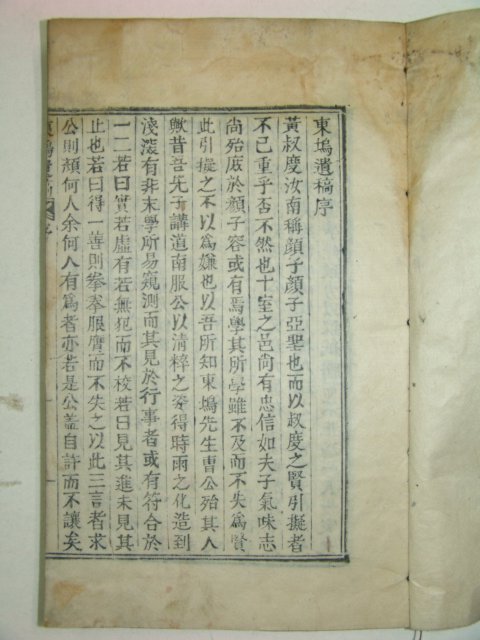 東塢遺稿序
黃叔度汝南稱顏子顏子亞聖也而以叔度之賢引擬者
不已重乎否不然也十室之邑尚有忠信如夫子氣味志
尚殆庶於顏子容或有焉學其所學雖不及而不失爲賢
此引擬之不以爲嫌也以吾所知東塢先生曺公殆其人
歟昔吾先子講道南服公以清粹之姿得時雨之化造到
淺深有非末學所易窺測而其見於行事者或有符合於
一二若曰實若虛有若無犯而不校若曰見其進未見其
止也若曰得一善則拳拳服膺而不失之以此三言者求
公則顏何人余何人有爲者亦若是公盖自許而不讓矣